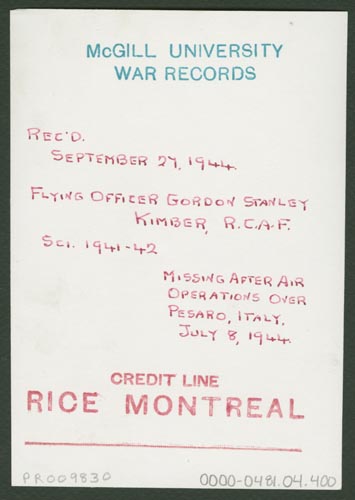 McGILL UNIVERSITY
WAR RECORDS
REC'D.
SEPTEMBER 27, 1944.
FLYING OFFICER GORDON STANLEY
KIMBER, R.C.A.F.
SCI. 1941-42
MISSING AFTER AIR
OPERATIONS OVER
PESARO, ITALY,
JULY 8, 1944.
CREDIT LINE
RICE MONTREAL
PR009830
0000-0481.04.400